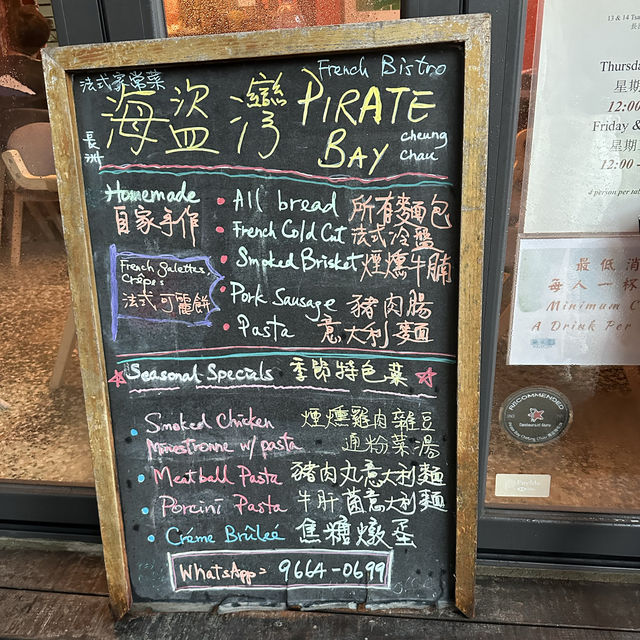 French Bistro
法式家常菜
海盜灣 PIRATE BAY
長洲
cheung chau
Homemade
自家手作
French Galettes, Crêpes
法式可麗餅
• All bread 所有麵包
• French Cold Cut 法式冷盤
• Smoked Brisket 煙燻牛腩
• Pork Sausage 豬肉腸
• Pasta 意大利麵
Seasonal Specials 季節特色菜
• Smoked Chicken 煙燻雞肉雜豆
Minestronne w/ pasta 通粉菜湯
• Meatball Pasta 豬肉丸意大利麵
• Porcini Pasta 牛肝菌意大利麵
• Créme Brûleé 焦糖燉蛋
WhatsApp: 9664-0699
Thursda
星期
12:00
Friday &
星期
12:00 -
4 person per tab
最低消
每人一杯
Minimum C
A Drink Per
RECOMMENDED
Restaurant Guru
PayMe